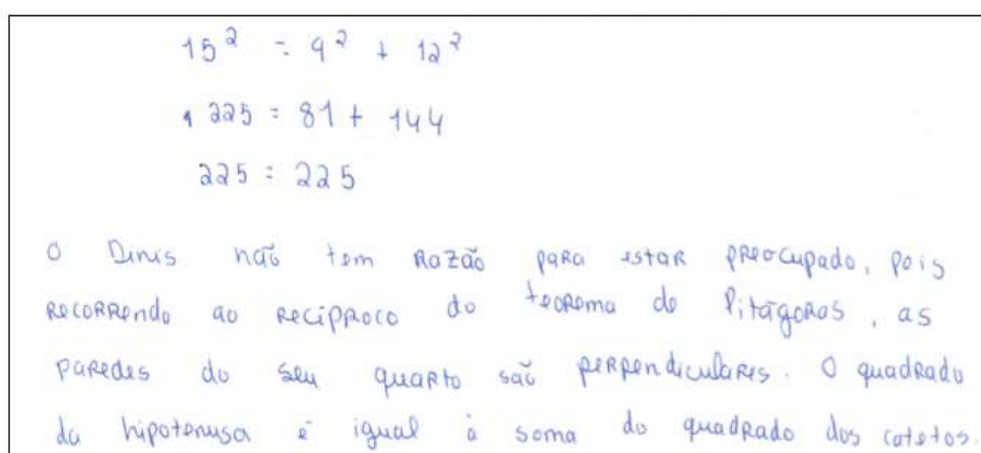 15² = 9² + 12²
225 = 81 + 144
225 = 225
O Dinis não tem razão para estar preocupado, pois
recorrendo ao recíproco do teorema de Pitágoras, as
paredes do seu quarto são perpendiculares. O quadrado
da hipotenusa é igual à soma do quadrado dos catetos.